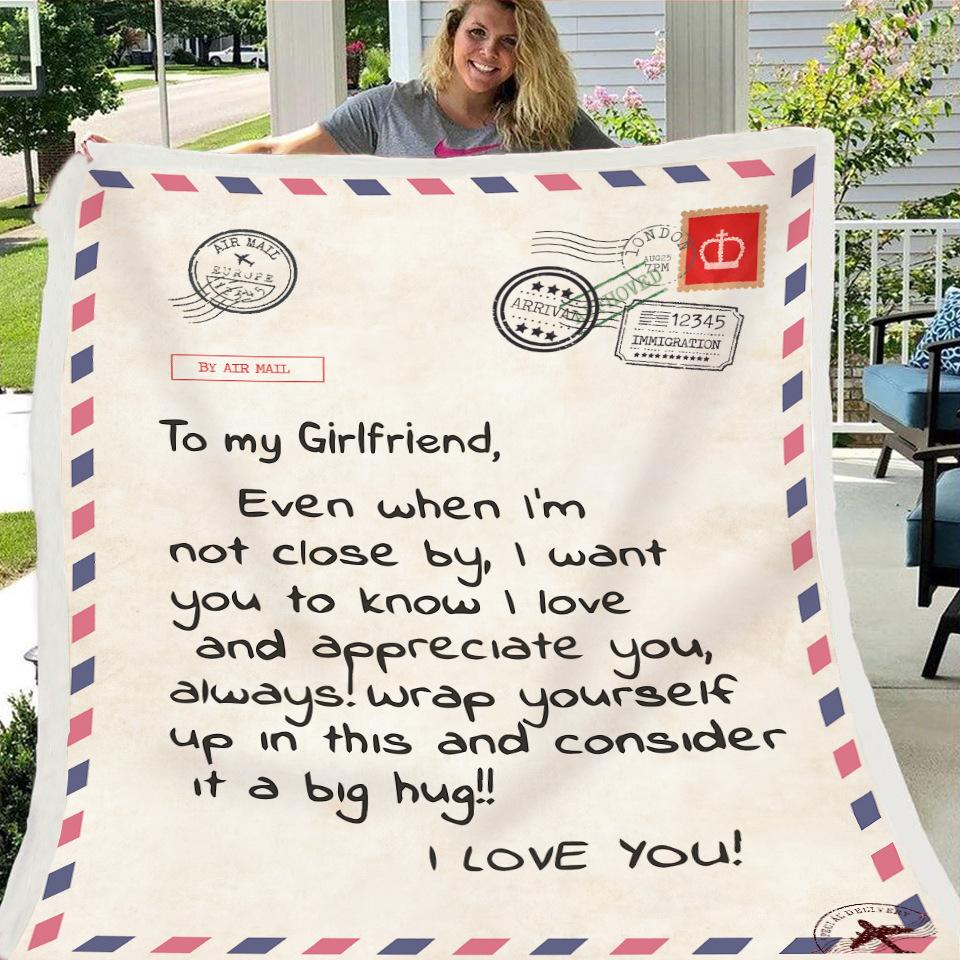 AIR MAIL
EUROPE
12345
LONDON
AUG25
7PM
ARRIVAL
12345
IMMIGRATION
BY AIR MAIL
To my Girlfriend,
Even when I'm
not close by, I want
you to know I love
and appreciate you,
always! wrap yourself
up in this and consider
it a big hug!!
I LOVE YOU!
DELIVERY